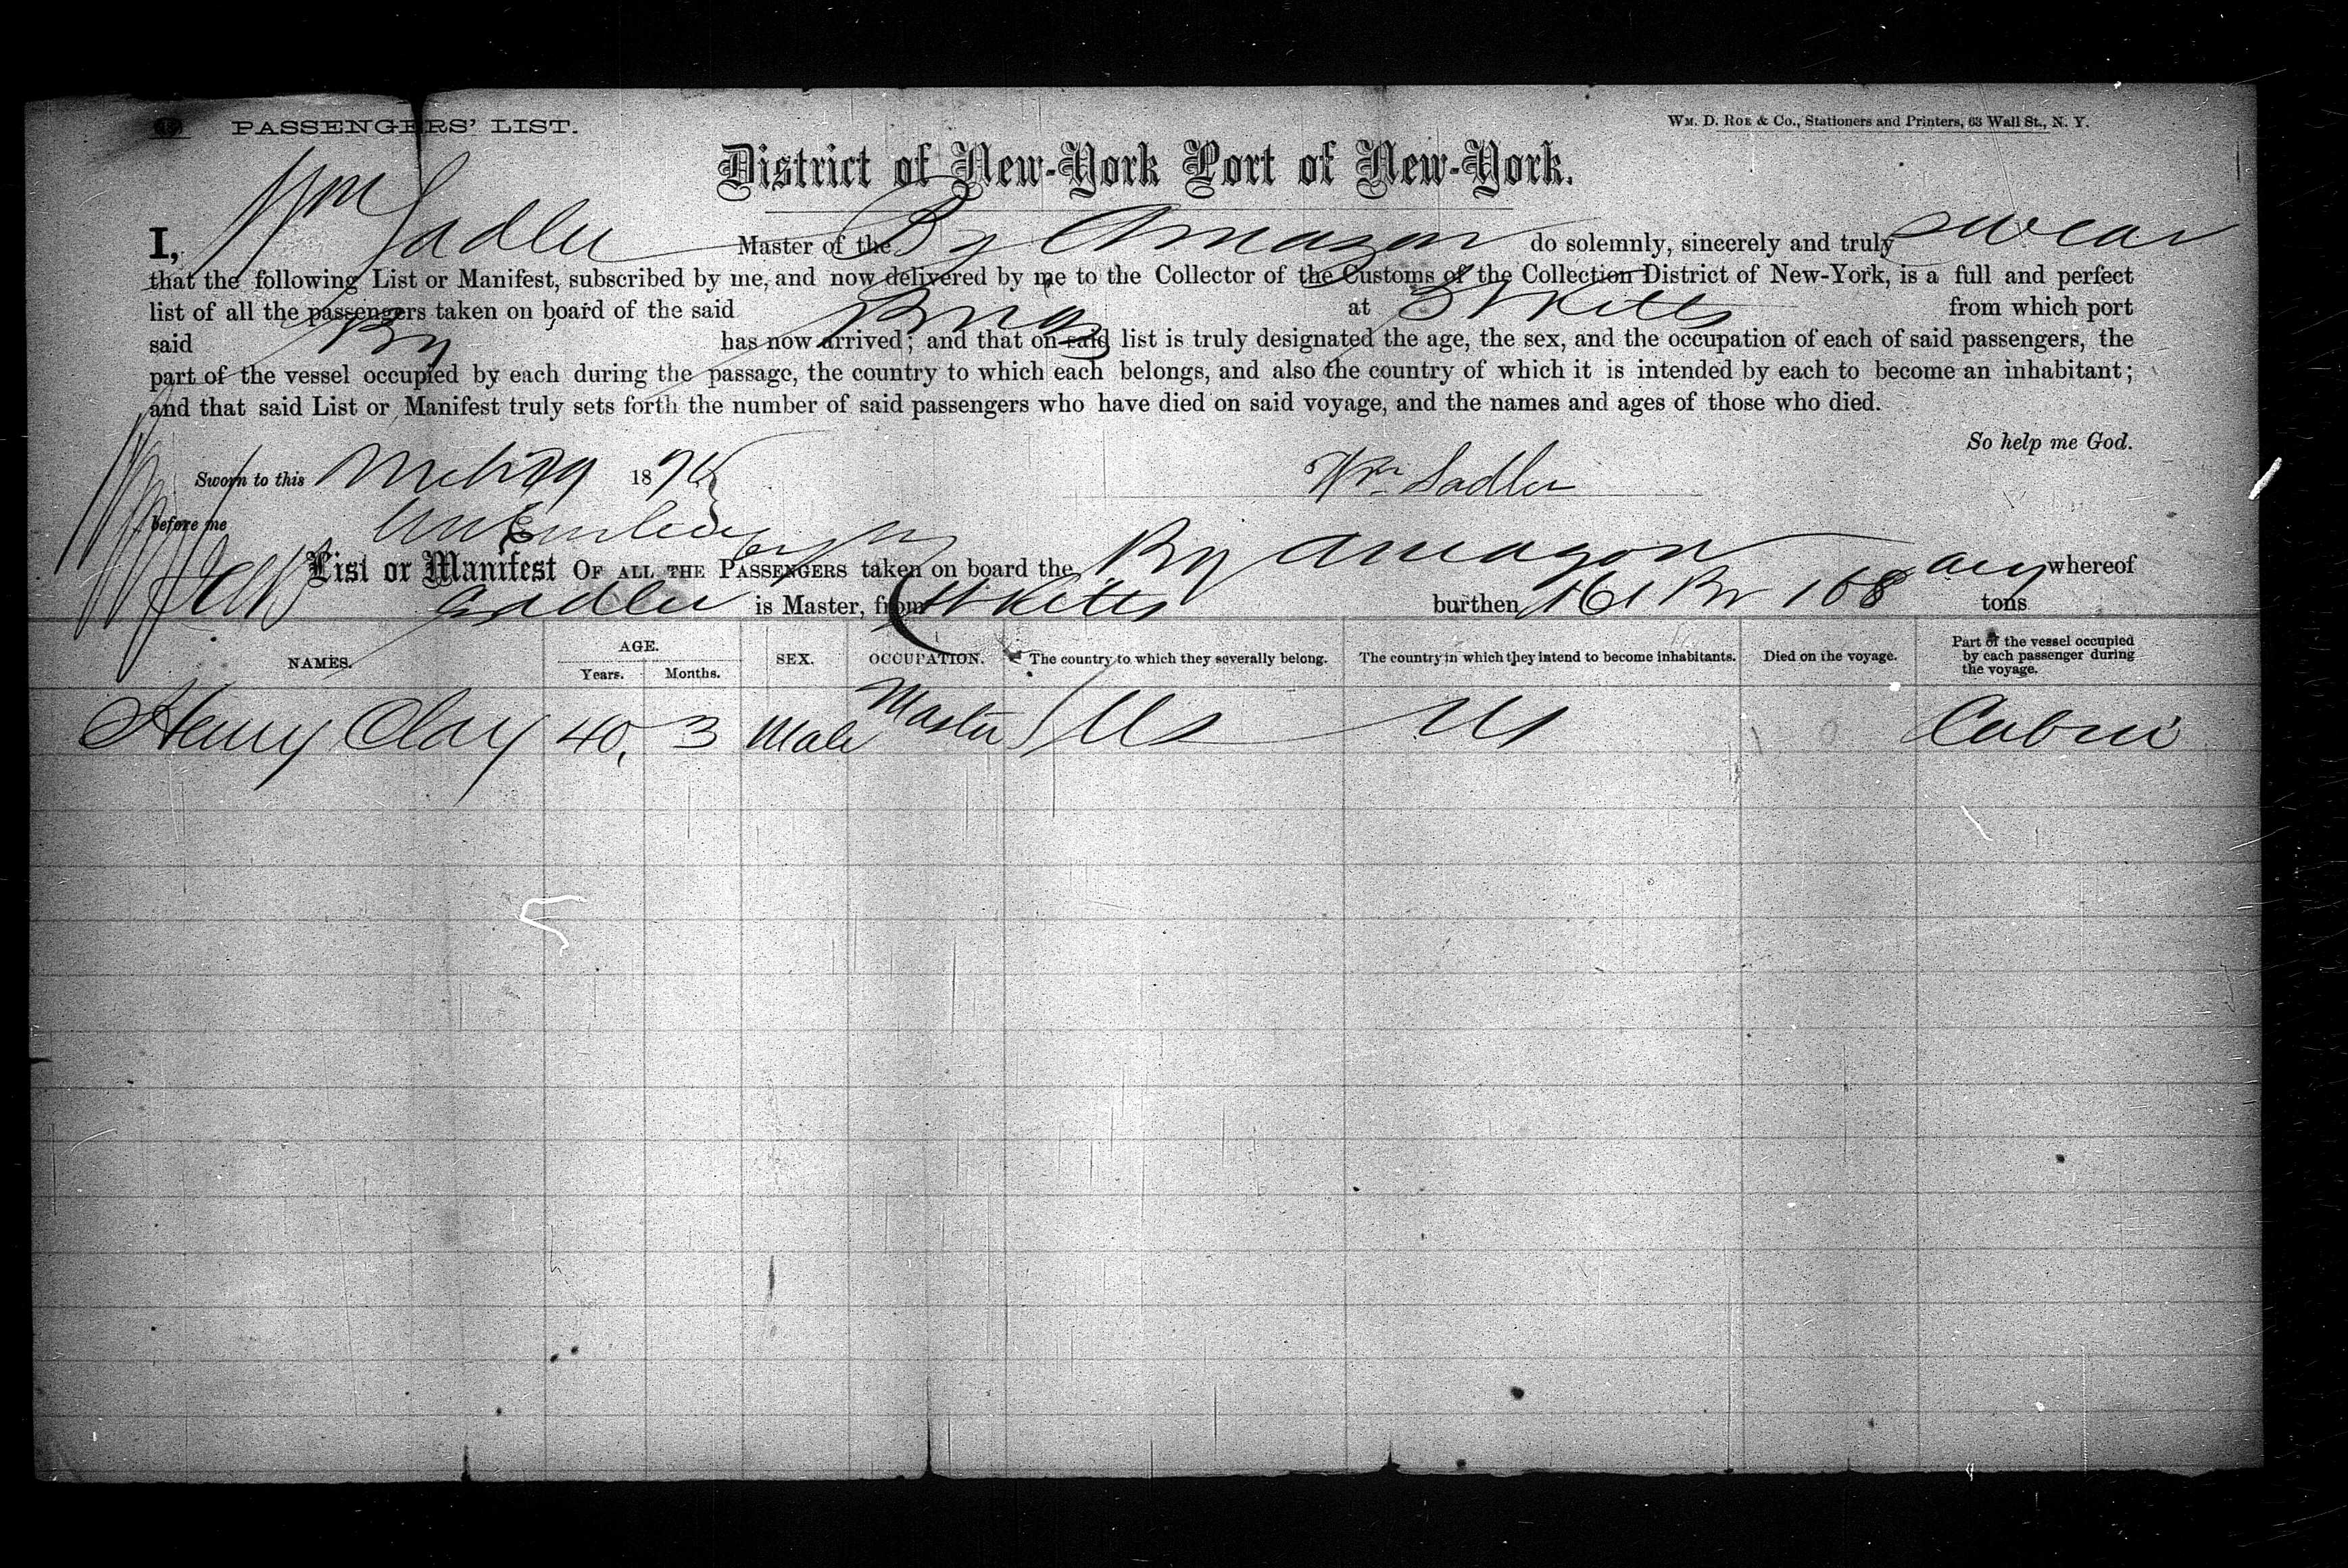 PASSENGERS' LIST.
WM. D. ROE & CO., Stationers and Printers, 63 Wall St., N. Y.
District of New-York Port of New-York.
I, Wm Sadler Master of the Bg Amazon do solemnly, sincerely and truly swear
that the following List or Manifest, subscribed by me, and now delivered by me to the Collector of the Customs of the Collection District of New-York, is a full and perfect
list of all the passengers taken on board of the said Brig at St Kitts from which port
said Bg has now arrived; and that on said list is truly designated the age, the sex, and the occupation of each of said passengers, the
part of the vessel occupied by each during the passage, the country to which each belongs, and also the country of which it is intended by each to become an inhabitant;
and that said List or Manifest truly sets forth the number of said passengers who have died on said voyage, and the names and ages of those who died.
So help me God.
Sworn to this 187
Wm Sadler
before me
List or Manifest OF ALL THE PASSENGERS taken on board the Bg Amazon whereof
Sadler is Master, from St Kitts burthen 161 Br 168 tons
NAMES. AGE. Years. Months. SEX. OCCUPATION. The country to which they severally belong. The country in which they intend to become inhabitants. Died on the voyage. Part of the vessel occupied by each passenger during the voyage.
Henry Clay 40, 3 Male Master Us Us Cabin